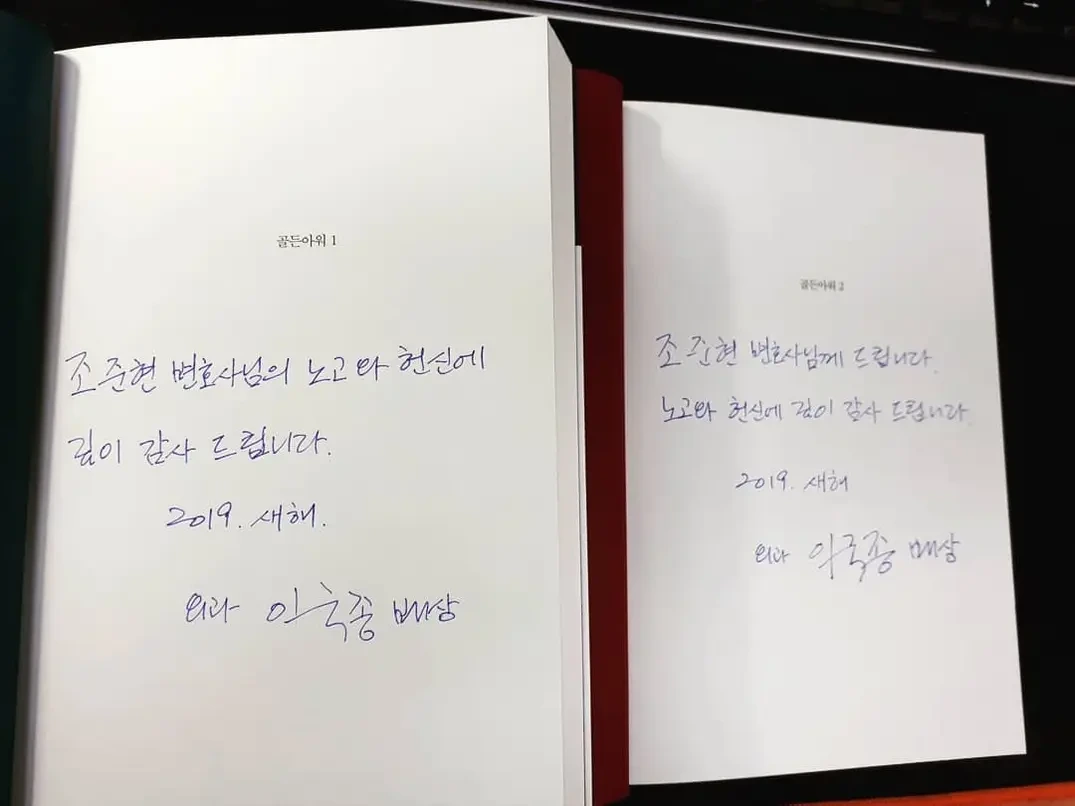 골든아워 1
조준현 변호사님의 노고와 헌신에
깊이 감사 드립니다.
2019. 새해.
외과 이국종 배상
골든아워 2
조준현 변호사님께 드립니다.
노고와 헌신에 깊이 감사 드립니다.
2019. 새해
외과 이국종 배상